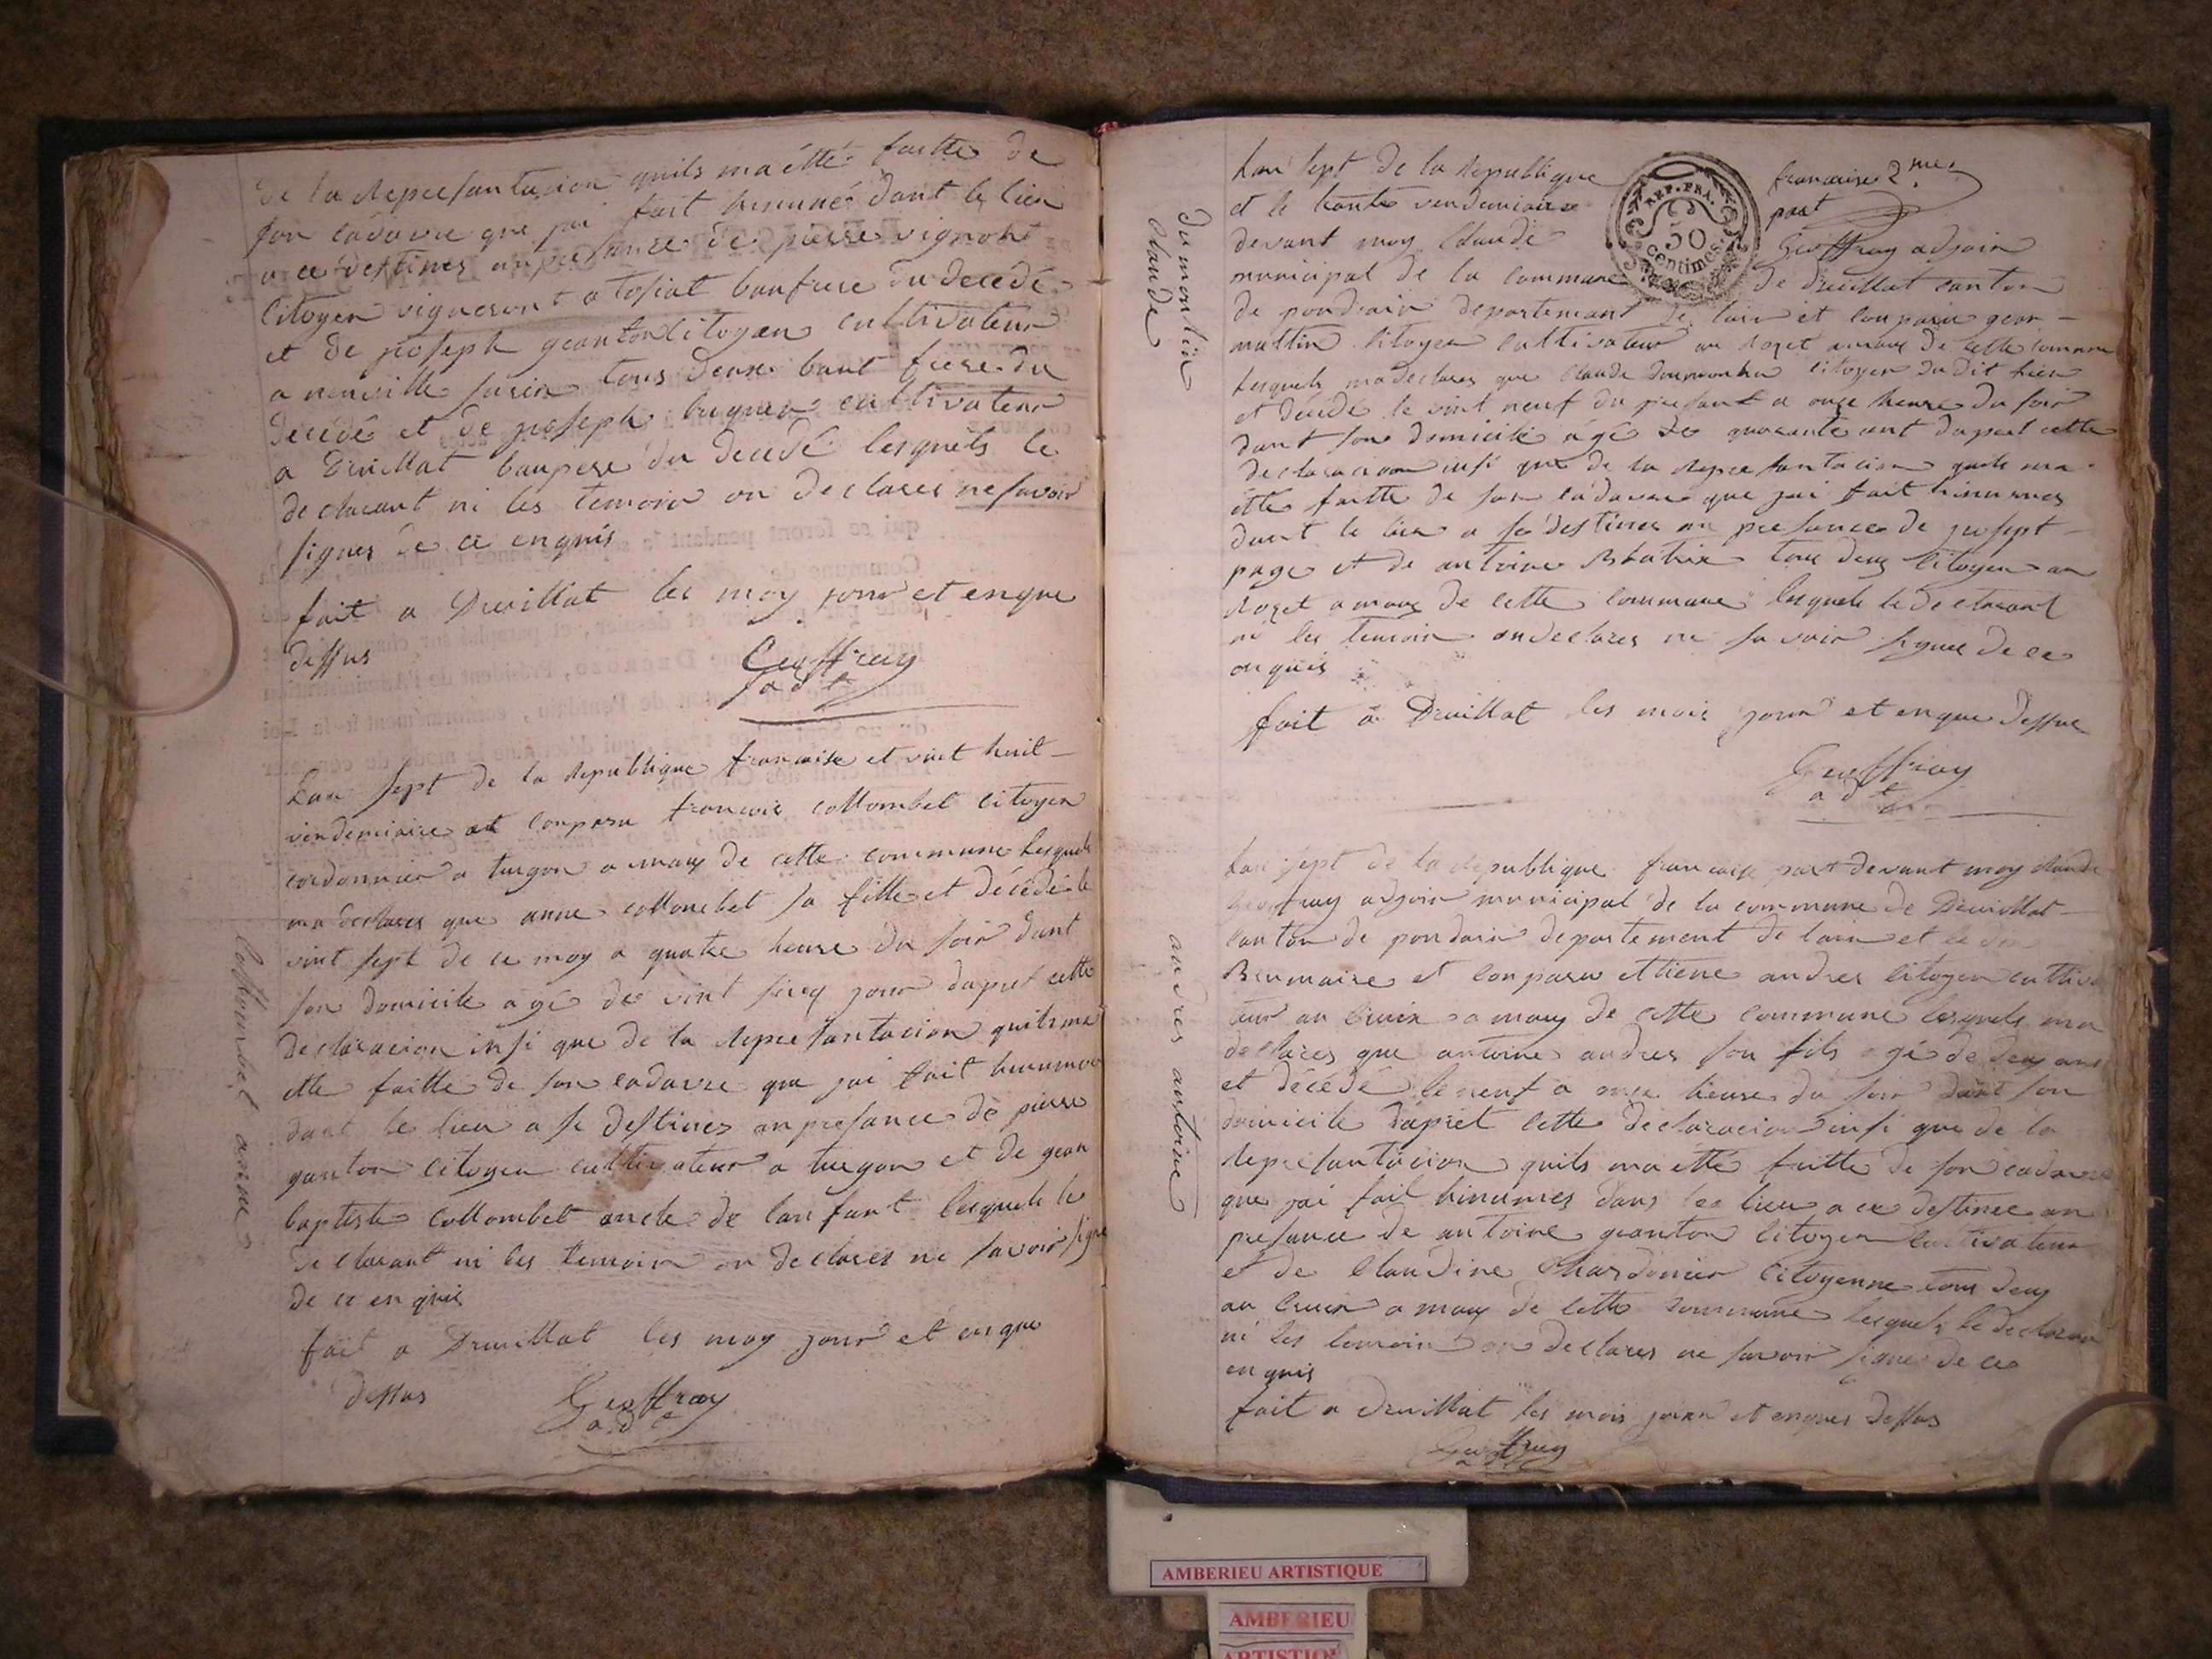 de la Represantacion quils ma étté faitte de
son cadavre que jai fait hinumé dant le lieu
a ce destines an presance de pierre vignont
Citoyen vigneron a tosiat baufrere du decedé
et de joseph geanton Citoyen cultivateur
a neuville surin tous deux baut frere du
decedé et de joseph cultivateur
a Druillat baupere du decedé lesquels le
declarant ni les temoin on declares ne savoir
signer de ce enquis
fait a Druillat les moy jour et enque
dessus
Geoffray
adt
Lan sept de la Republique francaise et vint huit
vendemiaire et conparu francois collombet citoyen
cordonnier a turgon a maux de cette commune lesquels
ma declares que anne collombet sa fille et décédé le
vint sept de ce moy a quatre heure du soir dant
son domicile agé de vint sinq jour dapret cette
declaracion insi que de la Represantacion quils ma
étte faitte de son cadavre que jai fait hinumer
dant le lieu a se destines an presance de pierre
ganton citoyen cultivateur a turgon et de gean
baptiste collombet oncle de lanfant lesquels le
declarant ni les temoin on declares ne savoir signe
de ce en quis
fait a Druillat les moy jour et enque
dessus
Geoffray
adt
Collombet anne
Lan sept de la Republique francaise 2me
et le trante vendemiaire part
devant moy Claude Geoffray adjoin
municipal de la commune de druillat canton
de pondain departemant de lain et conparu gean
mattin Citoyen cultivateur au Roget a maux de cette commune
lesquels ma declares que Claude Dumoulin citoyen du dit lieu
et décédé le vint neuf du presant a onze heure du soir
dant son domicile agé de quarante ant dapret cette
declaracion insi que de la Represantacion quils ma
étte faitte de son cadavre que jai fait hinumer
dant le lieu a se destines an presance de josept
page et de antoine Tous deux Citoyen au
Roget a maux de cette commune lesquels le declarant
ni les temoin on declares ne savoir signer de ce
onquis
fait a Druillat les mois jour et enque dessus
Geoffray
adt
REP. FRA.
50
centimes
dumoulin
claude
Lan sept de la Republique francaise part devant moy claude
Geoffray adjoin municipal de la commune de Druillat
canton de pondain departement de lain et le
Brumaire et conparu ettiene andres citoyen cultiva
teur au cruix a maux de cette commune lesquels ma
declares que antoine andres son fils agé de deux ans
et décédé le neuf a onze heure du soir dant son
domicile dapret cette declaracion insi que de la
Represantacion quils ma étté faitte de son cadavre
que jai fait hinumes dans le lieu a ce destinee an
presance de antoine geanton citoyen cultivateur
et de Claudine Chardonier citoyenne tous deux
au cruix a maux de cette commune lesquels le declarant
ni les temoin on declares ne savoir signer de ce
enquis
fait a druillat les mois jour et enques dessus
Geoffray
andres antoine
AMBERIEU ARTISTIQUE
AMBERIEU
ARTISTIQUE